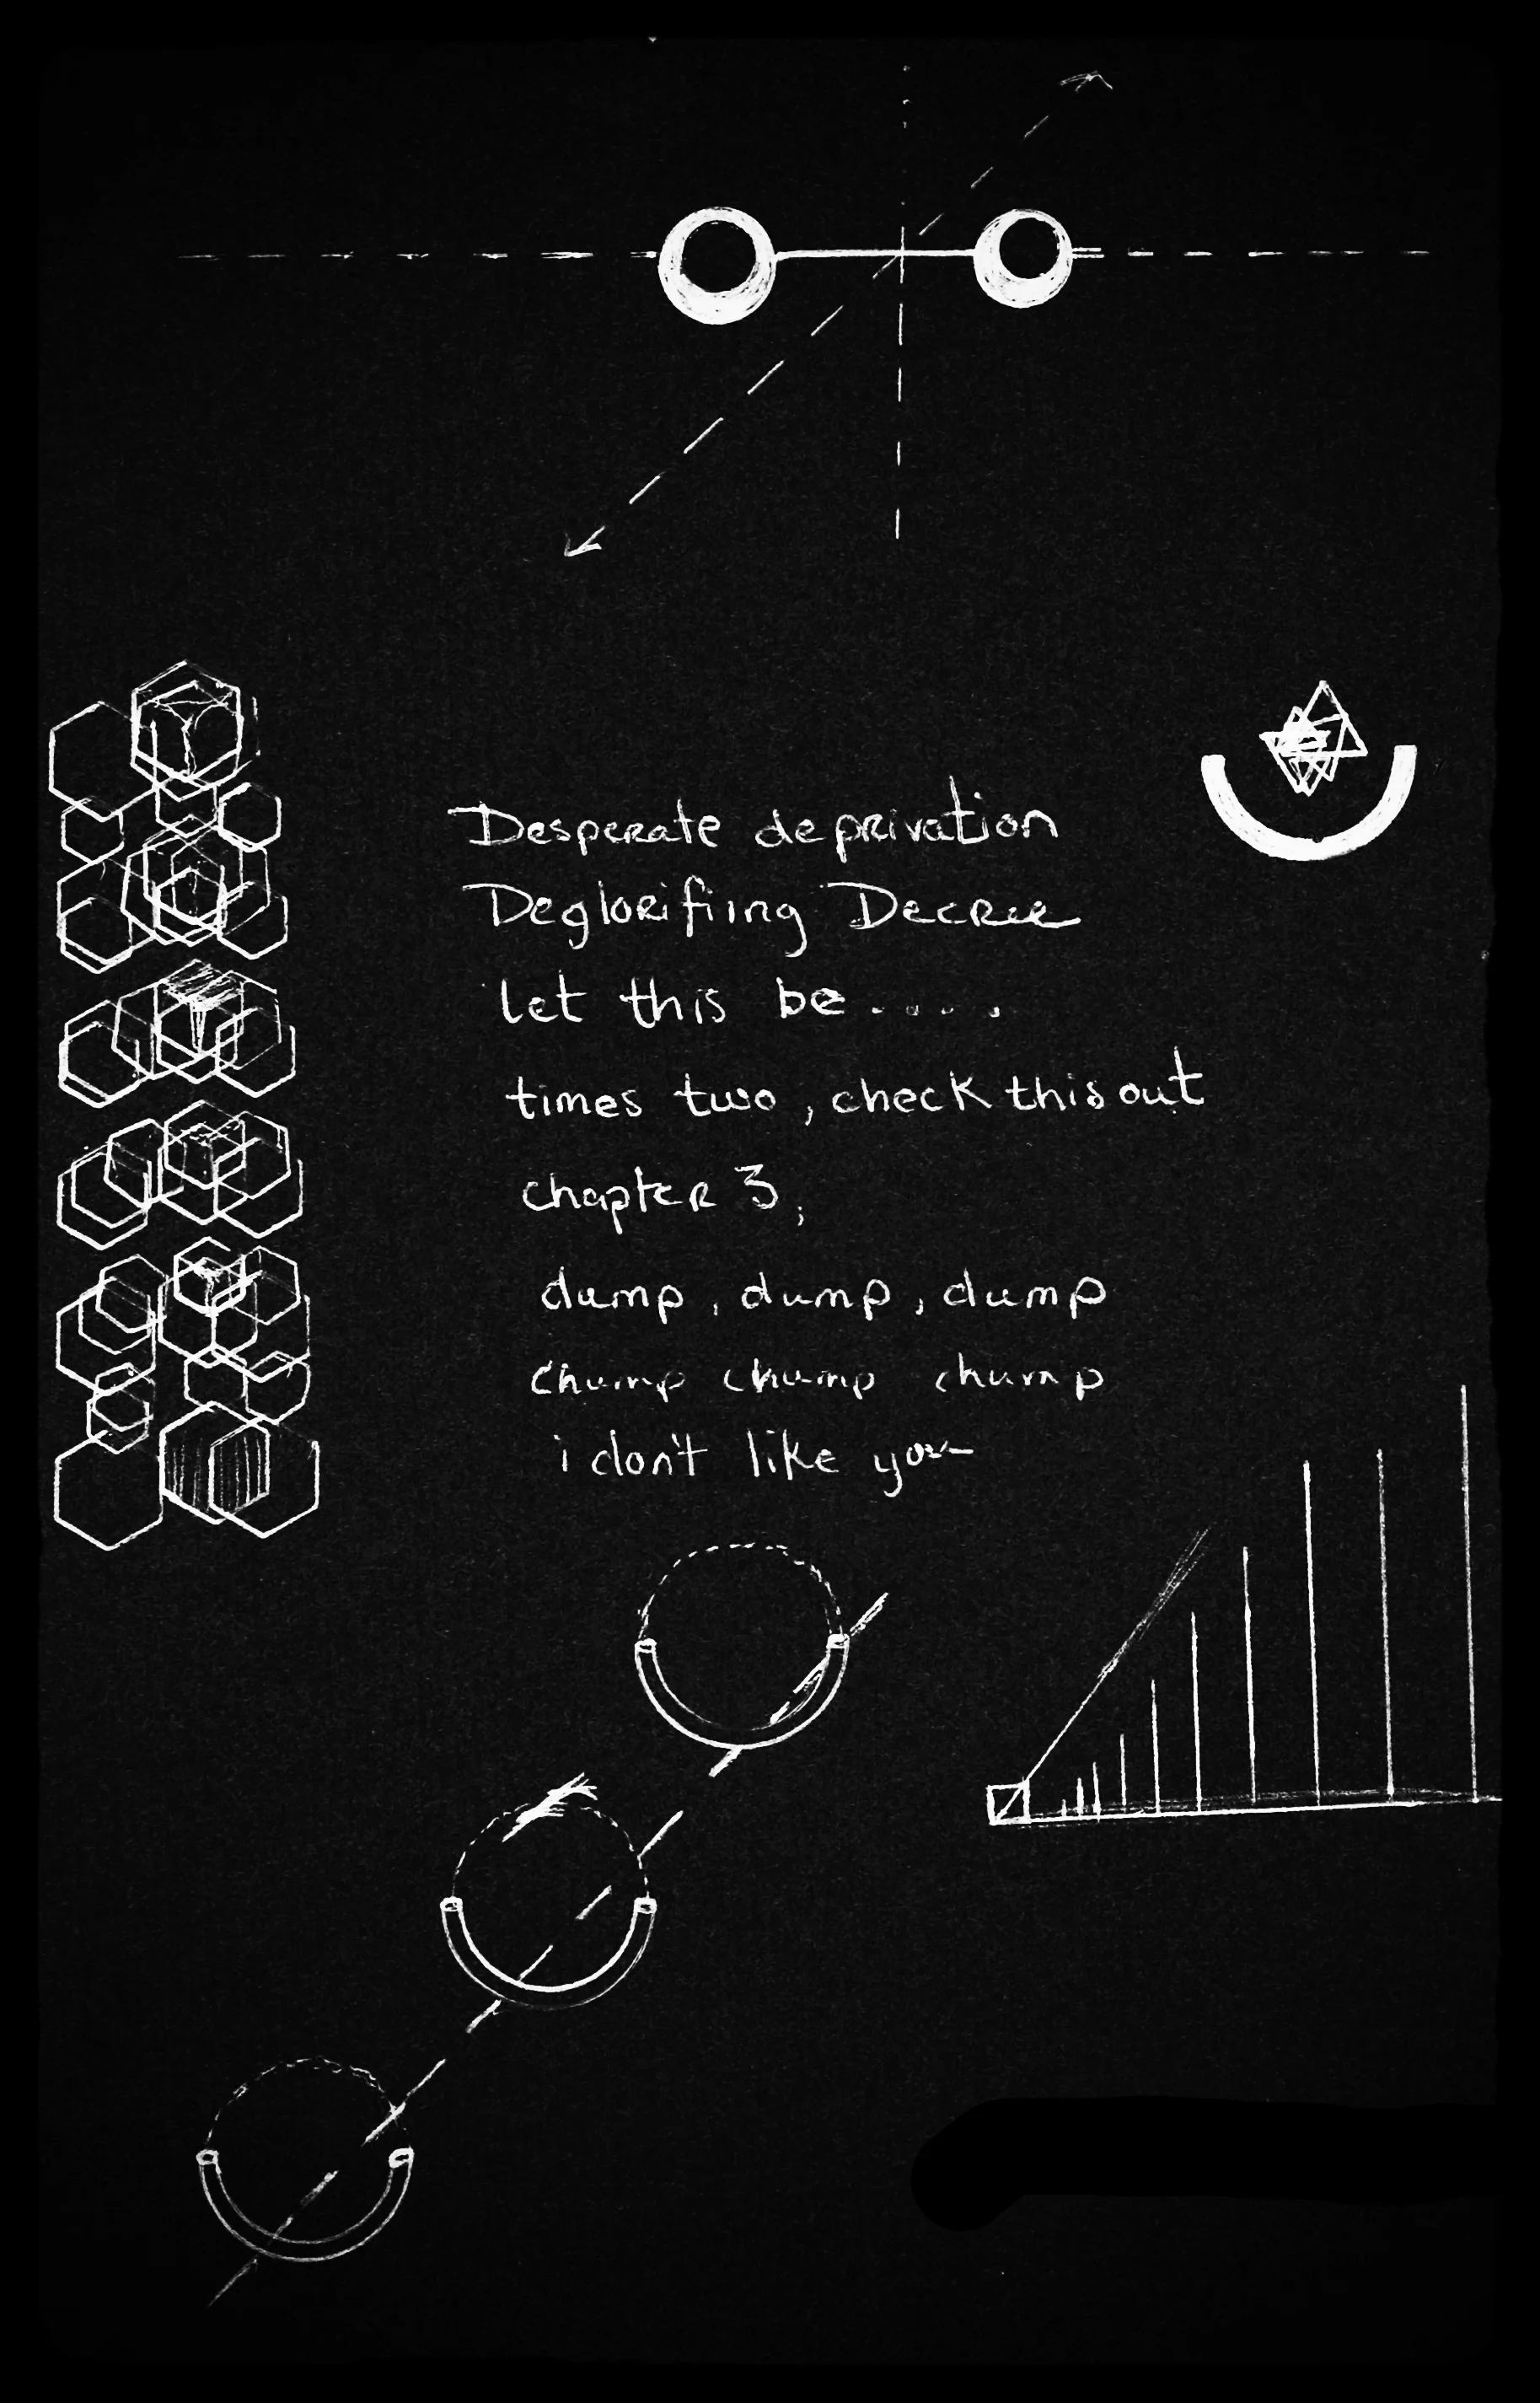 Desperate deprivation
Deglorifiing Decree
let this be.....
times two, check this out
chapter 3,
dump, dump, dump
chump chump chump
i don't like you